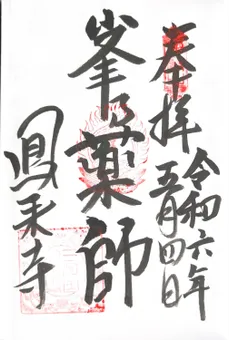 奉拝
令和六年
五月四日
峯乃薬師
鳳来寺